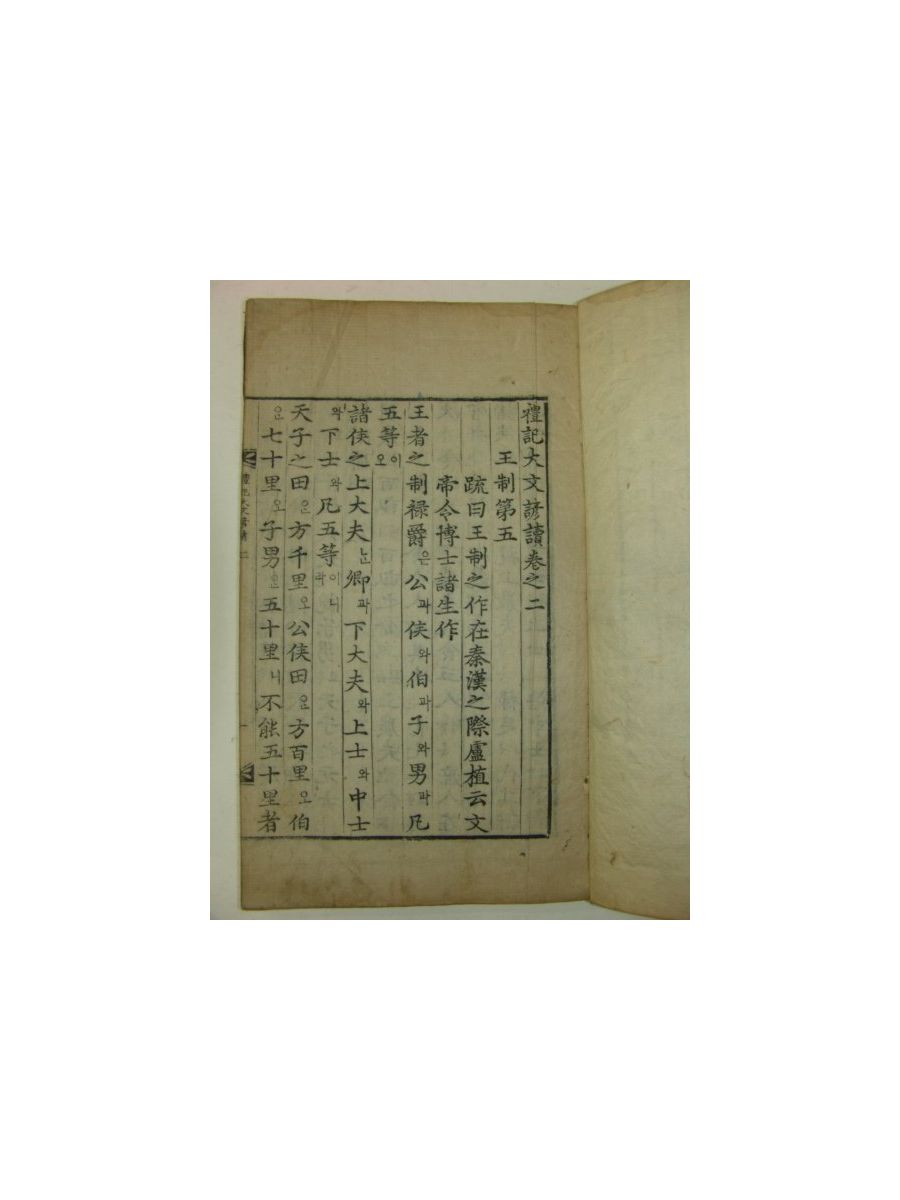 禮記大文諺讀卷之二
王制第五
疏曰王制之作在秦漢之際盧植云文
帝令博士諸生作
王者之制祿爵은公과侯와伯과子와男과凡
五等이오
諸侯之上大夫는卿과下大夫와上士와中士
와下士와凡五等이니라
天子之田은方千里오公侯田은方百里오伯
은七十里오子男은五十里니不能五十里者